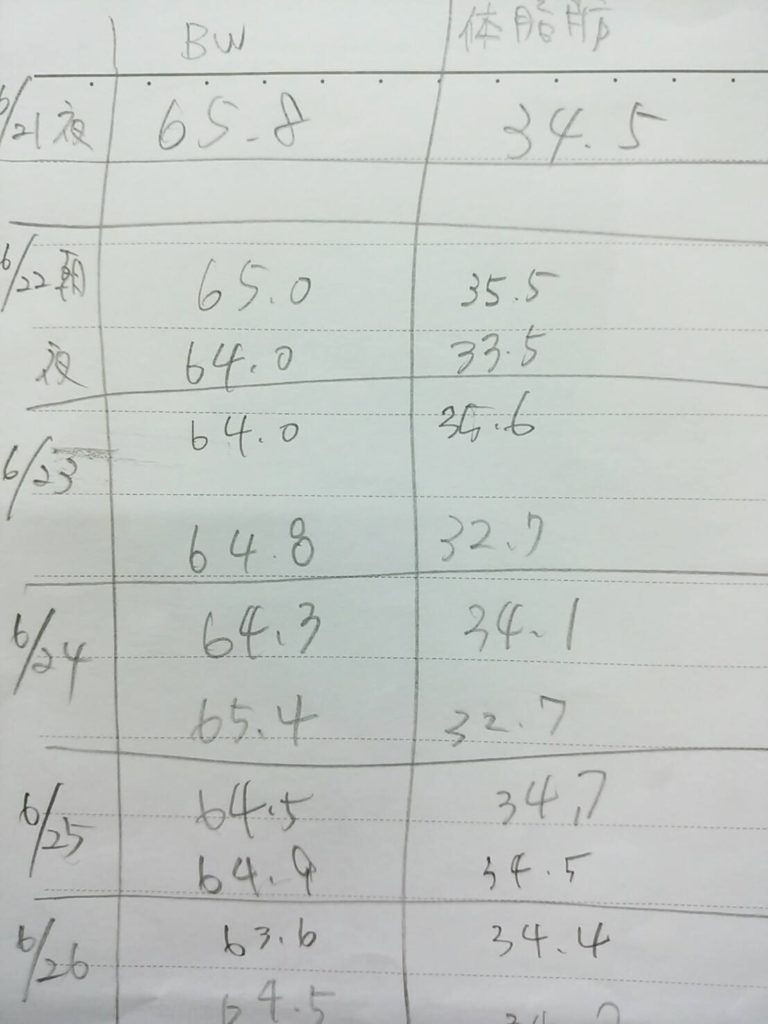 BW 体脂肪
6/21夜 65.8 34.5
6/22朝 65.0 35.5
夜 64.0 33.5
6/23 64.0 35.6
64.8 32.7
6/24 64.3 34.1
65.4 32.7
6/25 64.5 34.7
64.9 34.5
6/26 63.6 34.4
64.5